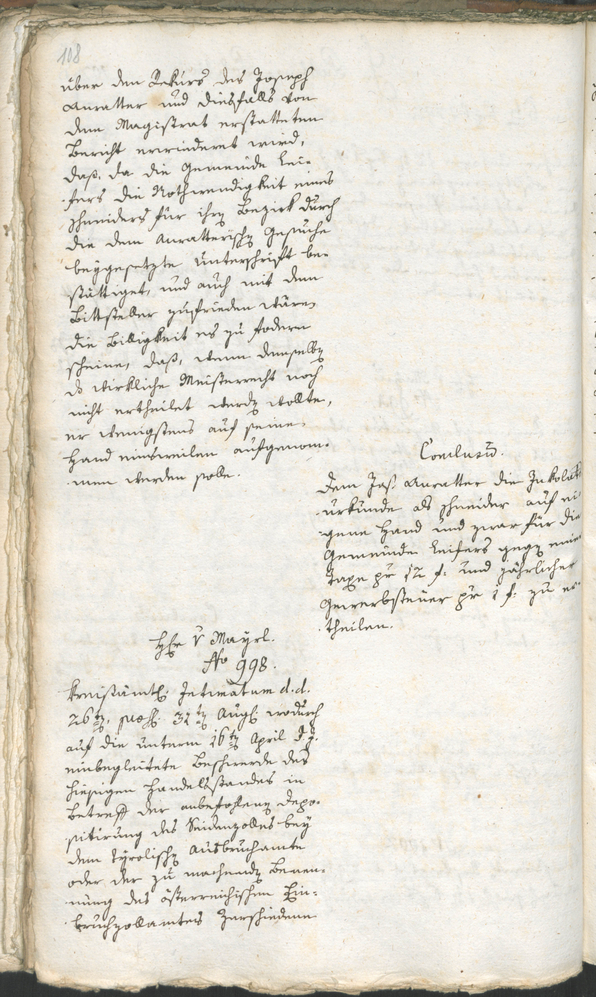 108
über den Rekurs des Joseph
Anratter und diesfalls von
dem Magistrat erstatteten
Bericht erwiederet wird,
daß, da die Gemeinde Lei-
fers die Nothwendigkeit eines
Schneiders für ihren Bezirk durch
die dem Anratterischen Gesuche
beygesetzte Unterschrift be-
stättiget, und auch mit dem
Bittsteller zufrieden wären
die Billigkeit es zu fodern
scheine, daß, wenn demselben
das wirkliche Meisterrecht noch
nicht ertheilet werden wollte,
er wenigstens auf seine
Hand einsweilen aufgenom-
men werden solle.
Conclusum.
Dem Jos. Anratter die Inkolats
urkunde als Schneider auf ei-
gene Hand und zwar für die
Gemeinde Leifers gegen eine
Taxe pr 12 f. und jährlicher
Gewerbsteuer pr 1 f. zu er-
theilen.
Hr. v Mayrl.
No 998.
Kreisämtl. Intimatum d. d.
26ten, 31ten Augl. wodurch
auf die unterm 16ten April d. J.
einbegleitete Beschwerde des
hiesigen Handelsstandes in
Betreff der anbefohlenen Depo-
sitirung des Seidenzolles bey
dem tyrolischen Ausbruchamte
oder der zu machenden Benen-
nung des österreichischen Ein-
bruchzollamtes